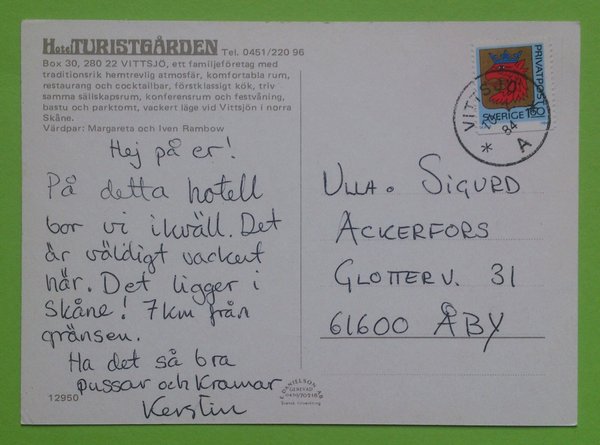 Hotel TURISTGÅRDEN Tel. 0451/220 96
Box 30, 280 22 VITTSJÖ, ett familjeföretag med
traditionsrik hemtrevlig atmosfär, komfortabla rum,
restaurang och cocktailbar, förstklassigt kök, triv
samma sällskapsrum, konferensrum och festvåning,
bastu och parktomt, vackert läge vid Vittsjön i norra
Skåne.
Värdpar: Margareta och Iven Rambow
Hej på er!
På detta hotell
bor vi ikväll. Det
är väldigt vackert
här. Det ligger i
skåne! 7km från
gränsen.
Ha det så bra
pussar och Kramar
Kerstin
12950
DANIELSON
PRIVATPOST
SVERIGE 160
VITTSJÖ
84
* A
ULLA o SIGURD
ACKERFORS
GLOTTERV. 31
61600 ÅBY